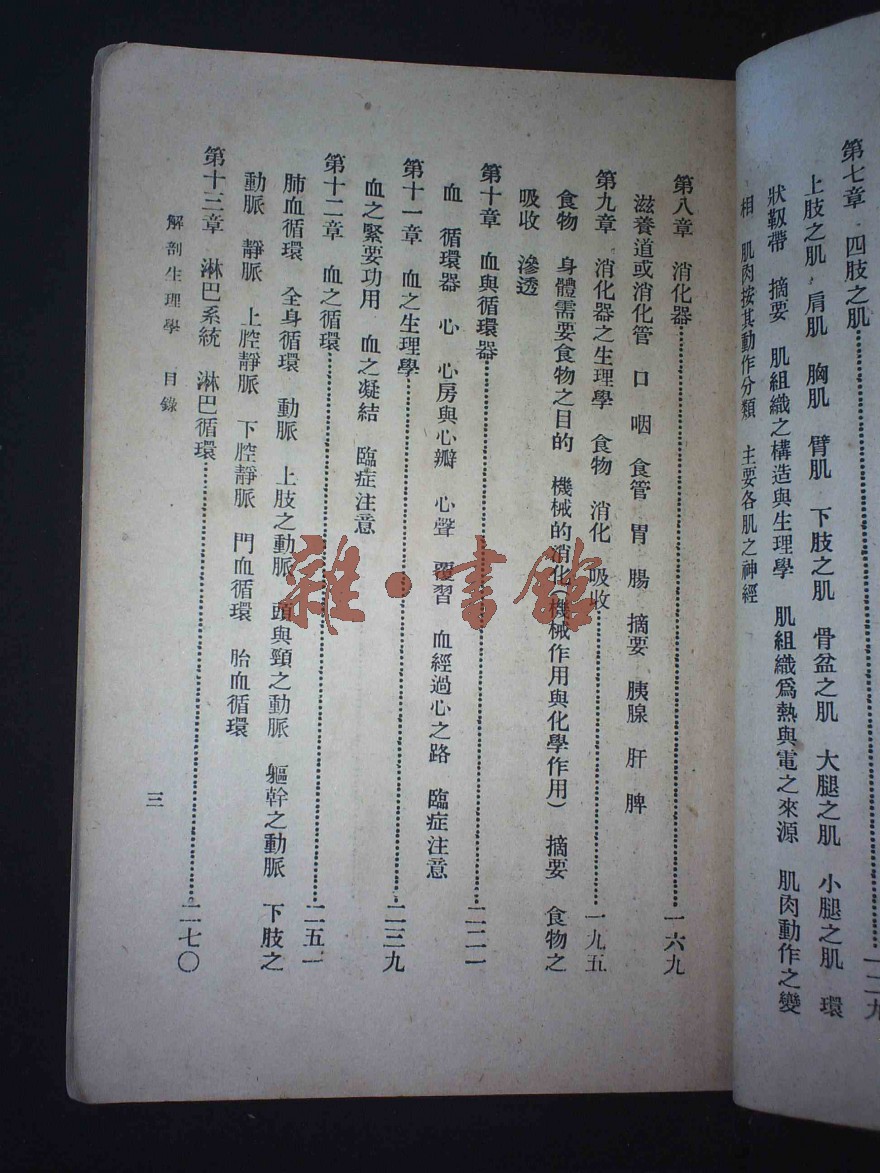 第七章　四肢之肌……一二九
上肢之肌　肩肌　胸肌　臂肌　下肢之肌　骨盆之肌　大腿之肌　小腿之肌　環
狀靱帶　摘要　肌組織之構造與生理學　肌組織爲熱與電之來源　肌肉動作之變
相　肌肉按其動作分類　主要各肌之神經
第八章　消化器……一六九
滋養道或消化管　口　咽　食管　胃　腸　摘要　胰腺　肝　脾
第九章　消化器之生理學　食物　消化　吸收……一九五
食物　身體需要食物之目的　機械的消化（機械作用與化學作用）　摘要　食物之
吸收　滲透
第十章　血與循環器……二二一
血　循環器　心　心房與心瓣　心聲　覆習　血經過心之路　臨症注意
第十一章　血之生理學……二三九
血之緊要功用　血之凝結　臨症注意
第十二章　血之循環……二五一
肺血循環　全身循環　動脈　上肢之動脈　頭與頸之動脈　軀幹之動脈　下肢之
動脈　靜脈　上腔靜脈　下腔靜脈　門血循環　胎血循環
第十三章　淋巴系統　淋巴循環……二七〇
解剖生理學　目錄
三
雜·書館